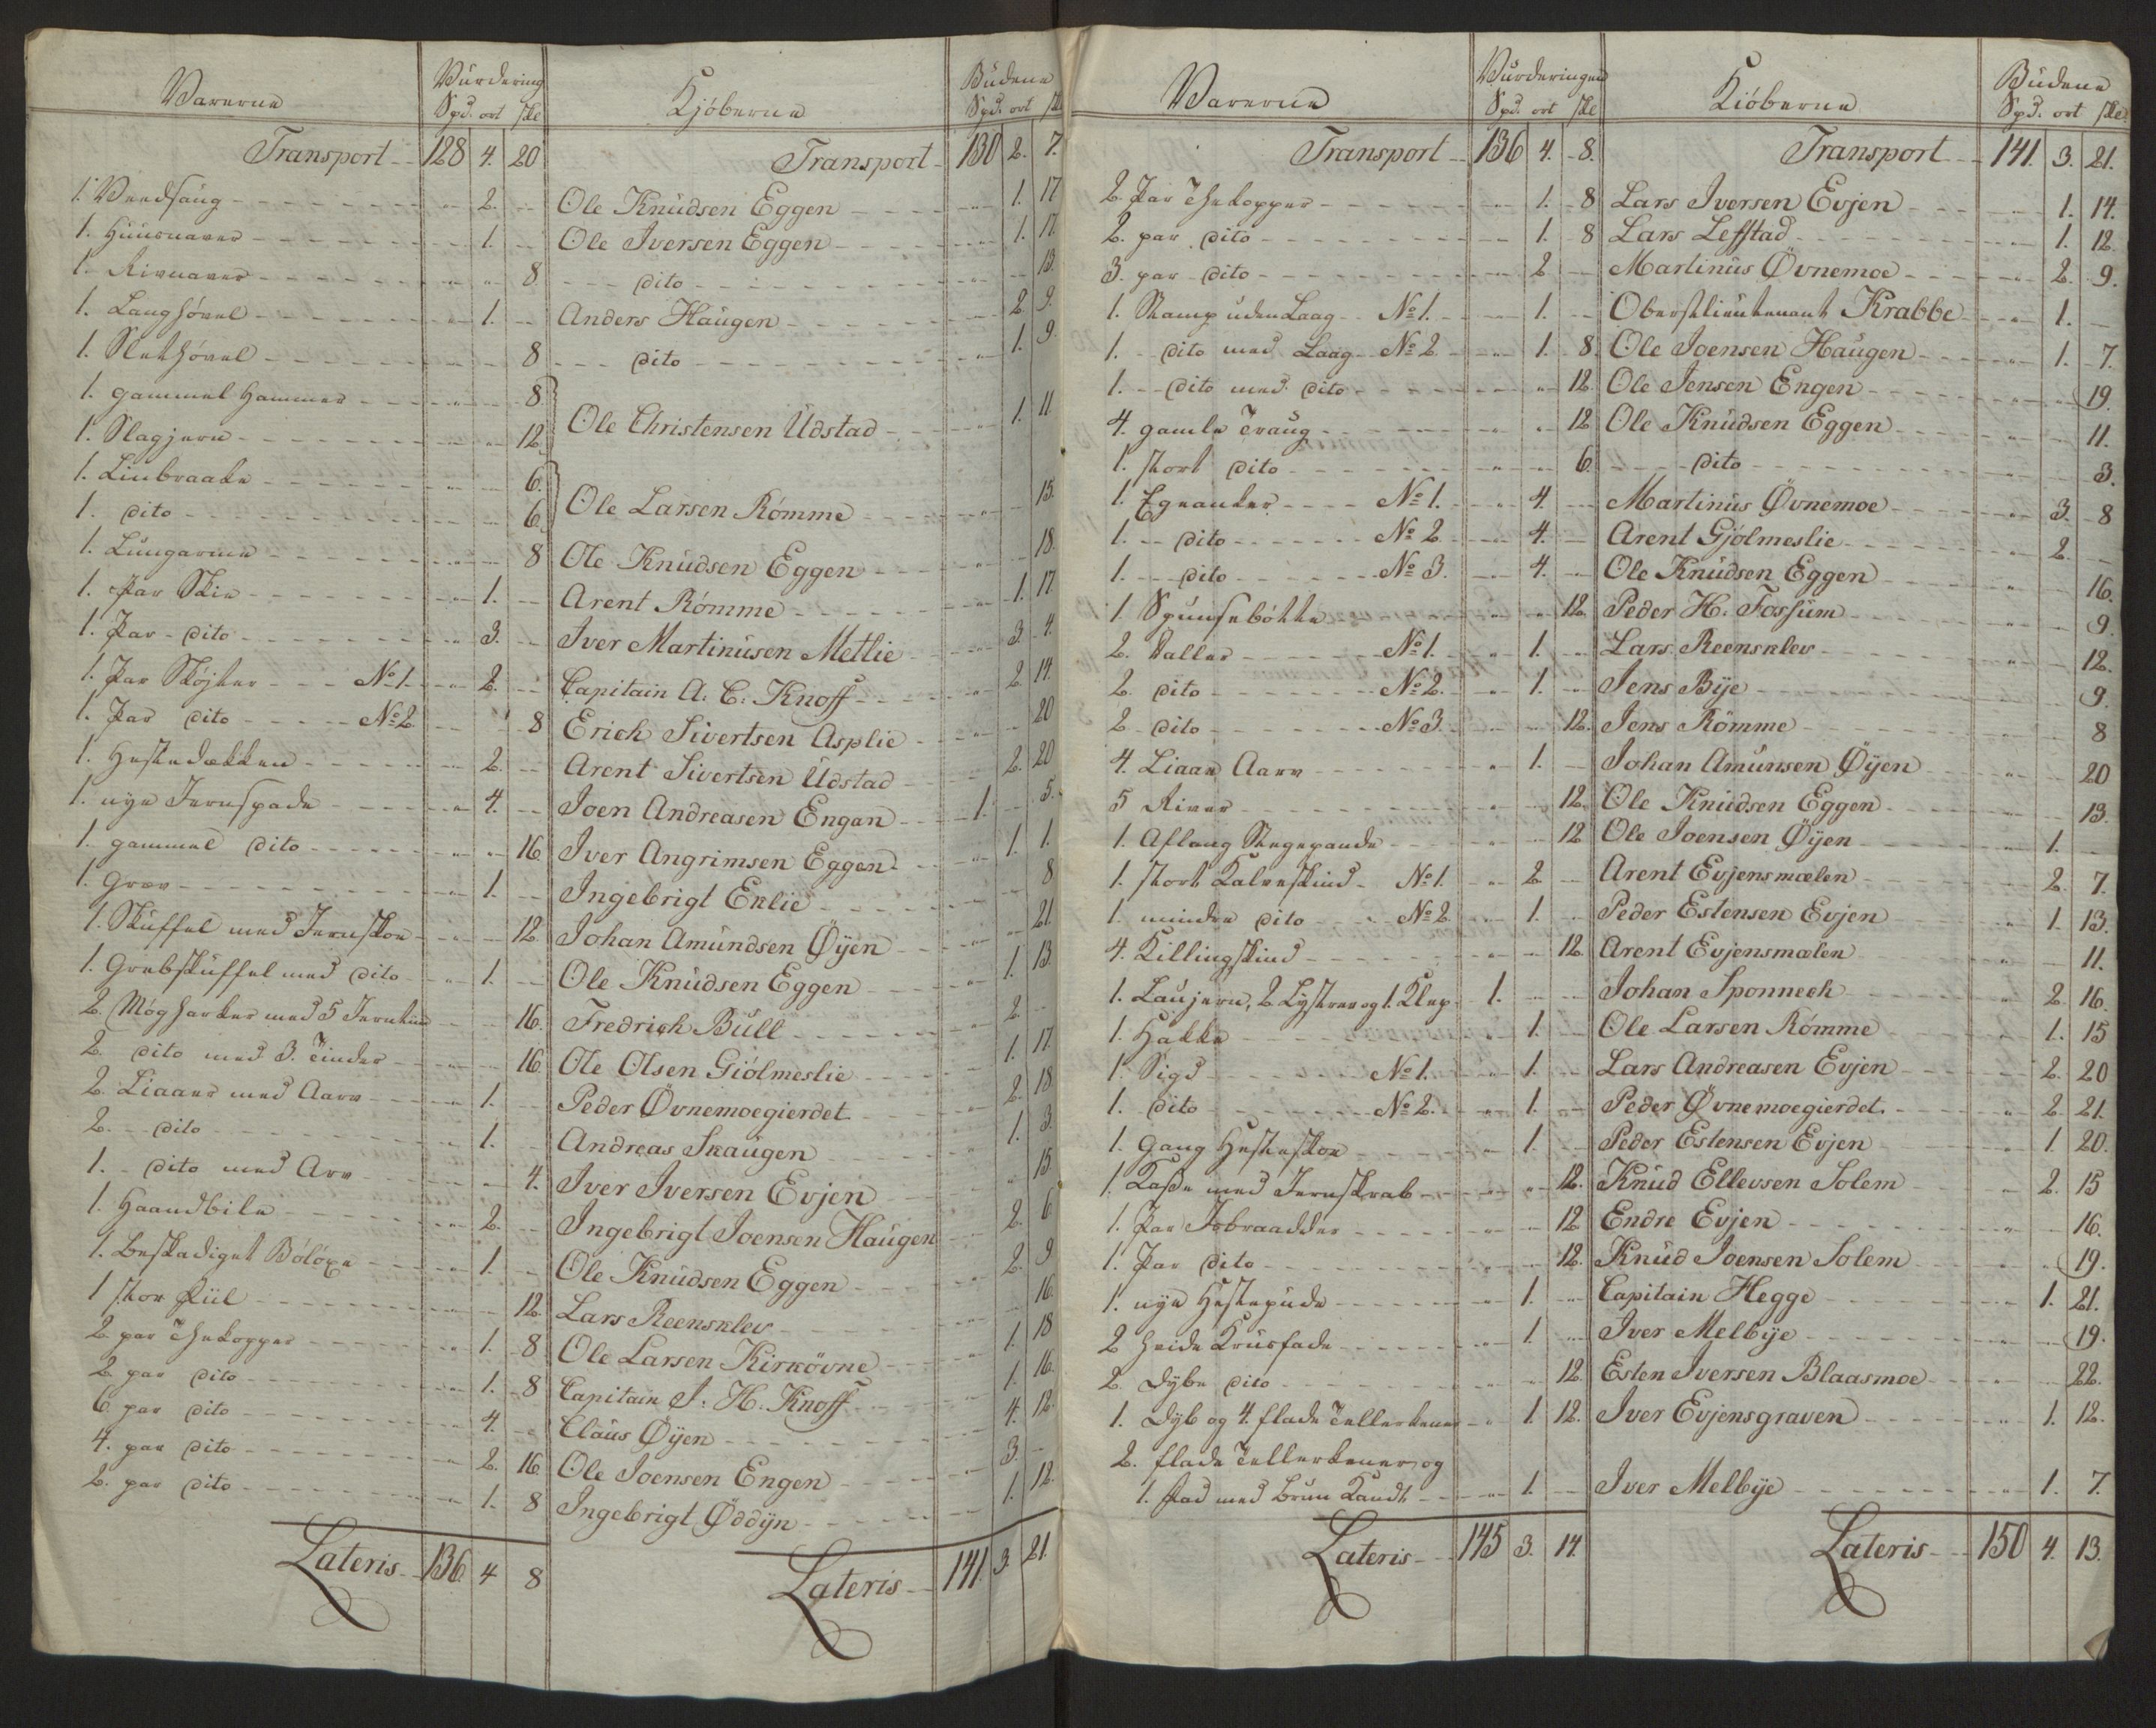 Varerne Vurdering Kjøberne Budene
Spd. ort ske Spd. ort sk
Transport 128 4. 20 Transport 130 2. 7.
1. Vendsaug " 2. - Ole Knudsen Eggen " 1. 17
1. Huusnaver " 1. - Ole Iversen Eggen " 1. 17.
1. Rivnaver " " 8 dito " - 13.
1. Langhøvel " 1. - Anders Haugen " 2 9.
1. Slethøvel " - 8 dito " 1. 9.
1. gammel Hammer " - 8.
1. Slagjern " - 12. Ole Christensen Udstad " 1. 11
1. Linbraake " - 6.
1. dito " - 6. Ole Larsen Römme " - 15.
1. Lungarine " - 8 Ole Knudsen Eggen " - 18.
1. Par Skie " 1. - Arent Römme " 1. 17.
1. Par dito " 3. - Iver Martinusen Metlie " 3 4.
1. Par Skøjter No 1. " 2. - Capitain A. C. Knoff " 2. 14.
1. Par dito No 2 " - 8 Erich Sivertsen Asplie " - 20
1. Hestedækken " 2. - Arent Sivertsen Udstad " 2. 20
1. nye Jernspade " 4. - Joen Andreasen Engan 1. - 5.
1. gammel dito " " 16. Iver Angrimsen Eggen " 1. 1.
1. Grev " 1. - Ingebrigt Eklie " - 8
1. Skuffel med Jernskoe " - 12. Johan Amundsen Øyen " - 21.
1. Grebskuffel med dito " 1. - Ole Knudsen Eggen " 1. 13.
2. Møgharker med 5 Jerntind " - 16. Fredrich Bull " 2 -
2. dito med 3. Tinder " - 16 Ole Olsen Giölmeslie " 1. 17.
2. Liaaer med Aarv " 1. - Peder Øvnemoegierdet " 2. 18.
2. dito " 1. - Andreas Skaugen " 1. 3.
1. dito med Arv " - 4. Iver Iversen Evjen " - 15.
1. Haandbile " 2. - Ingebrigt Joensen Haugen " 2. 6
1. beskadiget Bóløxe " 1. - Ole Knudsen Eggen " 2. 9
1 stor Fiil " - 12. Lars Reensklev " - 16.
2. par Thekopper " 1. 8 Ole Larsen Kirkövne " 1. 18
2. par dito " 1. 8 Capitain J. H. Knoff " 1. 16.
6. par dito " 4. - Claus Øyen " 4. 12.
4. par dito " 2. 16. Ole Joensen Engen " 3. -
2. par dito " 1. 8 Ingebrigt Øddyn " 1. 12.
Lateris 136. 4 8 Lateris 141. 3. 21.
Varerne Vurderingen Kiöberne Budene
Spd. ort ske Spd. ort ske
Transport 136 4. 8. Transport 141. 3. 21.
2. Par Thekopper " 1. 8 Lars Iversen Evjen " 1. 14.
2. par dito " 1. 8 Lars Lefstad " 1. 12.
3. par dito " 2 - Martinus Øvnemoe " 2. 9.
1. Stamp uden Laag No 1. " 1. - Oberstlieutenant Krabbe " 1. -
1. dito med Laag No 2 " 1. 8. Ole Joensen Haugen " 1. 7.
1. dito med dito " " 12. Ole Jensen Engen " " 19.
4. gamle Traug " " 12 Ole Knudsen Eggen " - 11.
1. stort dito " - 6. dito " - 3.
1. Egeanker No 1. " 4. - Martinus Øvnemoe " 3. 8
1. dito No 2 " 4. - Arent Gjölmeslie " 2. -
1. dito No 3. " 4. - Ole Knudsen Eggen " - 16.
1 Spunsebøtte " " 12. Peder H. Fossum " - 9.
2. Baller No 1. " 1. - Lars Reensklev " - 12.
2. dito No 2. " 1. - Jens Bye " - 9.
2 dito No 3. " - 12. Jens Römme " - 8
4. Liaae Aarv " 1. - Johan Amunsen Øyen " - 20
5 River " - 12. Ole Knudsen Eggen " - 13.
1. Aflang Stegepande " - 12 Ole Joensen Øyen " 1. -
1. stort Kalveskind No 1. " 2 - Arent Evjensmælen " 2. 7.
1. mindre dito No 2 " 1. - Peder Estensen Evjen " 1. 13.
4. Killingskind " - 12. Arent Evjensmælen " - 11.
1. Laujern, 2 Lystrer og 1. Klep 1. - - Johan Sponnech " 2. 16.
1. Hakke " 1. - Ole Larsen Römme " 1. 15
1. Sigd No 1. " 1. - Lars Andreasen Evjen " 2. 20
1. dito No 2. " 1. - Peder Øvnemoegierdet " 2. 21.
1. Gang Hesteskoe " 1. - Peder Estensen Evjen " 1. 20.
1. Kasse med Jernskrab " " 12. Knud Ellevsen Solem " 2. 15
1. Par Isbraadder " " 12 Endre Evjen " - 16.
1. Par dito " " 12. Knud Joensen Solem " " 19.
1. nye Hestepude " 1. - Capitain Hegge " 1. 21.
2 hvide Kruusfade " 1. - Iver Melbye " - 19.
2. dybe dito " - 12. Esten Iversen Blaasmoe " - 22.
1. dyb og 4. flade Tellerkener " 1. 12. Iver Evjensgraven " 1. 12.
2. flade Tellerkener og
1. Fad med bruun Kandt " 1. - Iver Melbye " 1. 7.
Lateris 145 3. 14. Lateris 150 4. 13.